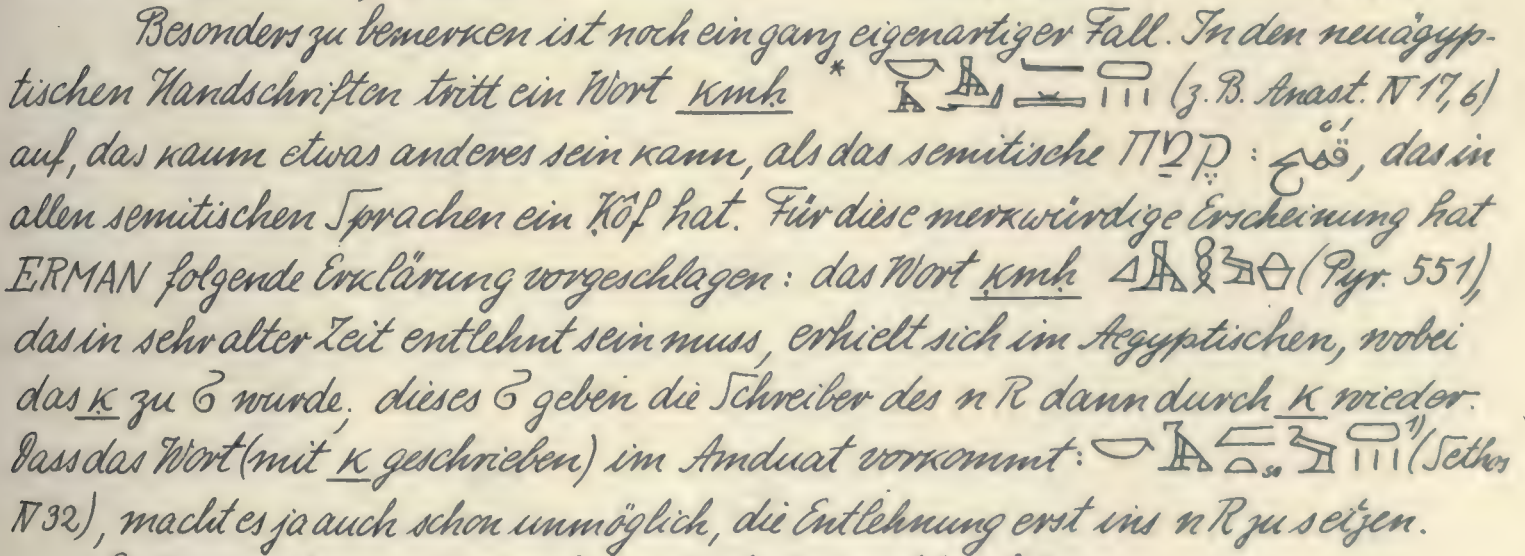 Besonders zu bemerken ist noch ein ganz eigenartiger Fall. In den neuägyp-
tischen Handschriften tritt ein Wort kmḥ * (z. B. Anast. IV 17,6)
auf, das kaum etwas anderes sein kann, als das semitische קֶמַח : قمح, das in
allen semitischen Sprachen ein Ḳôf hat. Für diese merkwürdige Erscheinung hat
ERMAN folgende Erklärung vorgeschlagen: das Wort ḳmḥ (Pyr. 551),
das in sehr alter Zeit entlehnt sein muss, erhielt sich im Aegyptischen, wobei
das ḳ zu ϭ wurde; dieses ϭ geben die Schreiber des n R dann durch k wieder.
Dass das Wort (mit k geschrieben) im Amduat vorkommt: ¹⁾ (Sethos
IV 32), macht es ja auch schon unmöglich, die Entlehnung erst ins n R zu setzen.